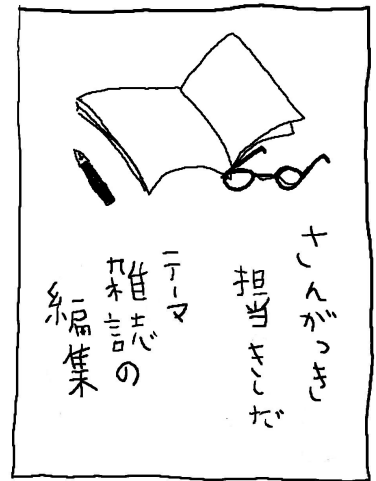 さんがつき
担当 きしだ
テーマ
雑誌の
編集